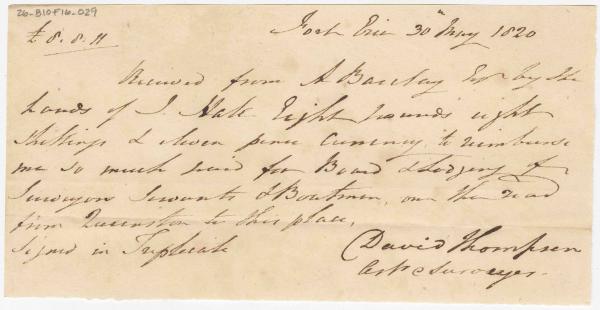 26-B10-F16-029
£8.8.11
Fort Erie 30th May 1820
Received from A Barclay Esqr by the
hands of J. Hale Eight pounds eight
Shillings & eleven pence currency to reimburse
me so much paid for Board & Lodging of
Surveyors Servants & Boatmen, on the road
from Queenston to this place,
Signed in Triplicate
David Thompson
Astr & Surveyor.